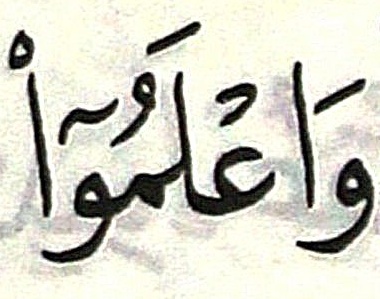 وَاعْلَمُوٓا۟